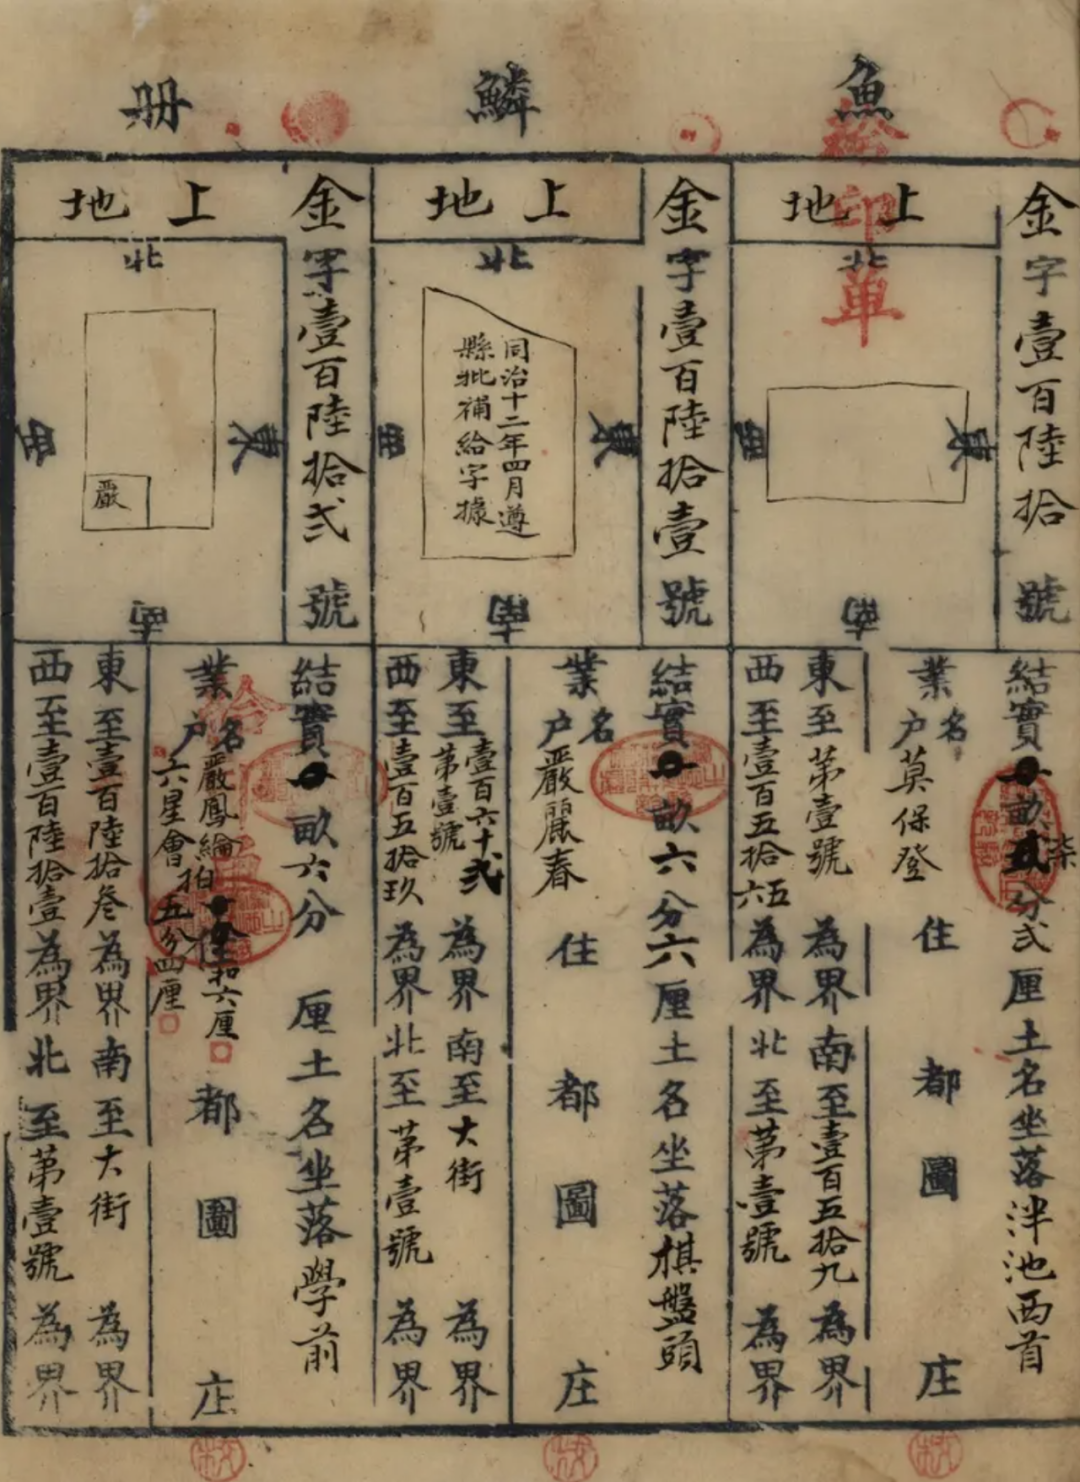 魚鱗册
給印單
金字壹百陸拾號
上地
北
東
西
南
結實畝分弍厘土名坐落泮池西首
柒
業户名莫保登住都圖庄
東至第壹號為界南至壹百五拾九為界
西至壹百五拾六五為界北至第壹號為界
金字壹百陸拾壹號
上地
北
東
西
南
同治十二年四月遵
縣批補給字據
結實畝六分六厘土名坐落棋盤頭
業户名嚴麗春住都圖庄
東至壹百六十弍第壹號為界南至大街為界
西至壹百五拾玖為界北至第壹號為界
金字壹百陸拾弍號
上地
北
東
西
南
嚴
結實畝六分厘土名坐落學前
業户名嚴鳳綸六厘
六星會拍五分四厘
都圖庄
東至壹百陸拾叁為界南至大街為界
西至壹百陸拾壹為界北至第壹號為界